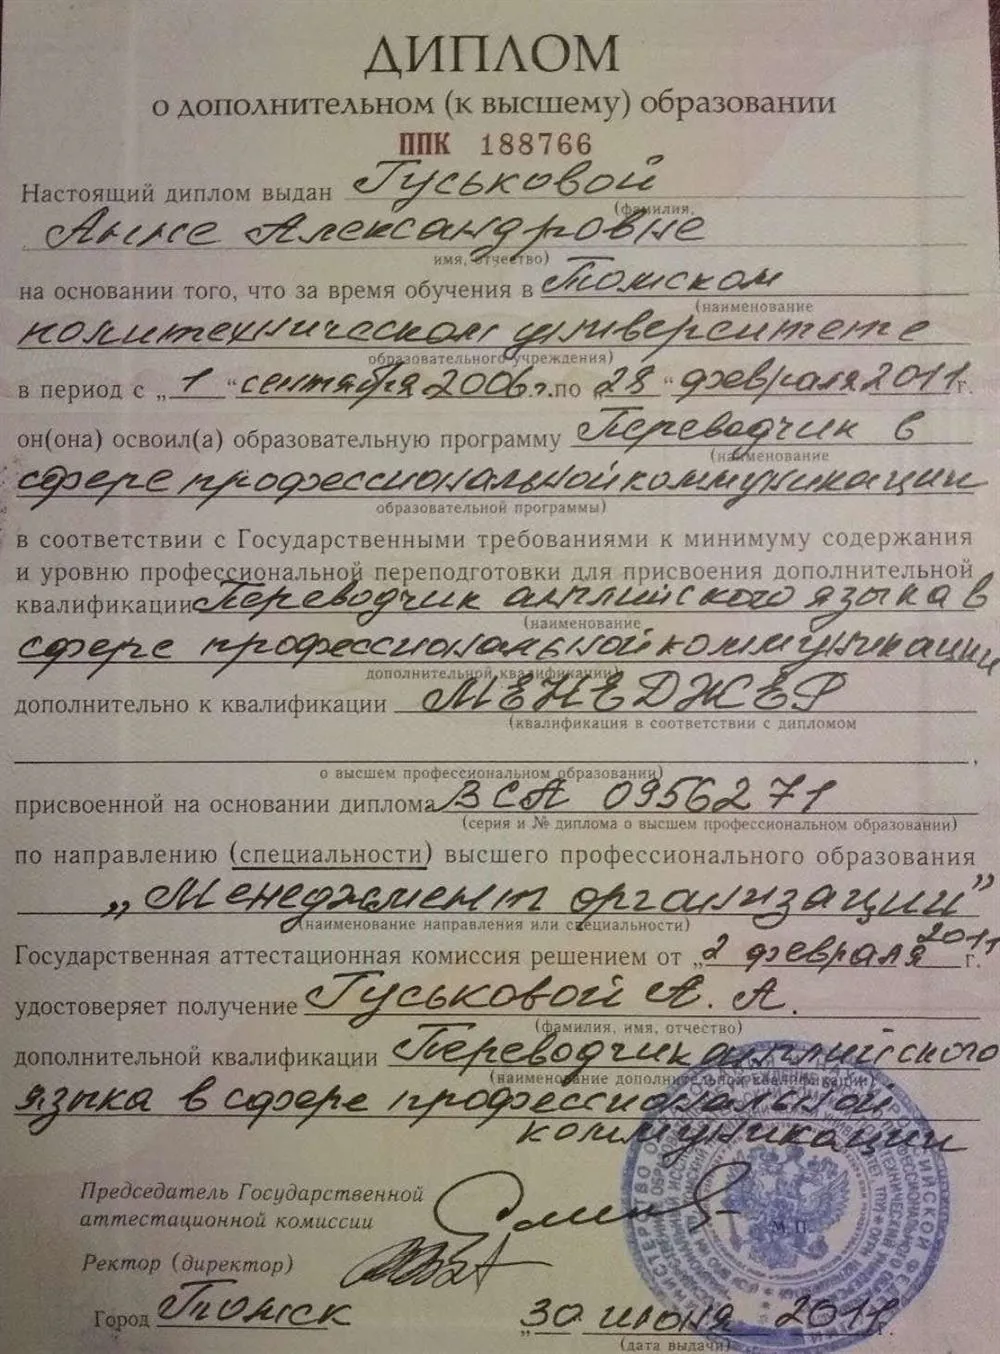 ДИПЛОМ
О ДОПОЛНИТЕЛЬНОМ (К ВЫСШЕМУ) ОБРАЗОВАНИИ
ППК 188766
Настоящий диплом выдан Гуськовой
(фамилия,
Анне Александровне
имя, отчество)
на основании того, что за время обучения в Томском
(наименование
политехническом университете
образовательного учреждения)
в период с „ 1 “ сентября 2006 г. по „ 28 “ февраля 2011 г.
он(она) освоил(а) образовательную программу Переводчик в
(наименование
сфере профессиональной коммуникации
образовательной программы)
в соответствии с Государственными требованиями к минимуму содержания
и уровню профессиональной переподготовки для присвоения дополнительной
квалификации Переводчик английского языка в
(наименование
сфере профессиональной коммуникации
дополнительной квалификации)
дополнительно к квалификации МЕНЕДЖЕР
(квалификация в соответствии с дипломом
о высшем профессиональном образовании)
присвоенной на основании диплома ВСА 0956271
(серия и № диплома о высшем профессиональном образовании)
по направлению (специальности) высшего профессионального образования
„Менеджмент организации”
(наименование направления или специальности)
Государственная аттестационная комиссия решением от „2 февраля 2011 г.
удостоверяет получение Гуськовой А. А.
(фамилия, имя, отчество)
дополнительной квалификации Переводчик английского
(наименование дополнительной квалификации)
языка в сфере профессиональной
коммуникации
Председатель Государственной
аттестационной комиссии
М.П.
Ректор (директор)
Город Томск „30 июня 2011 г.
(дата выдачи)